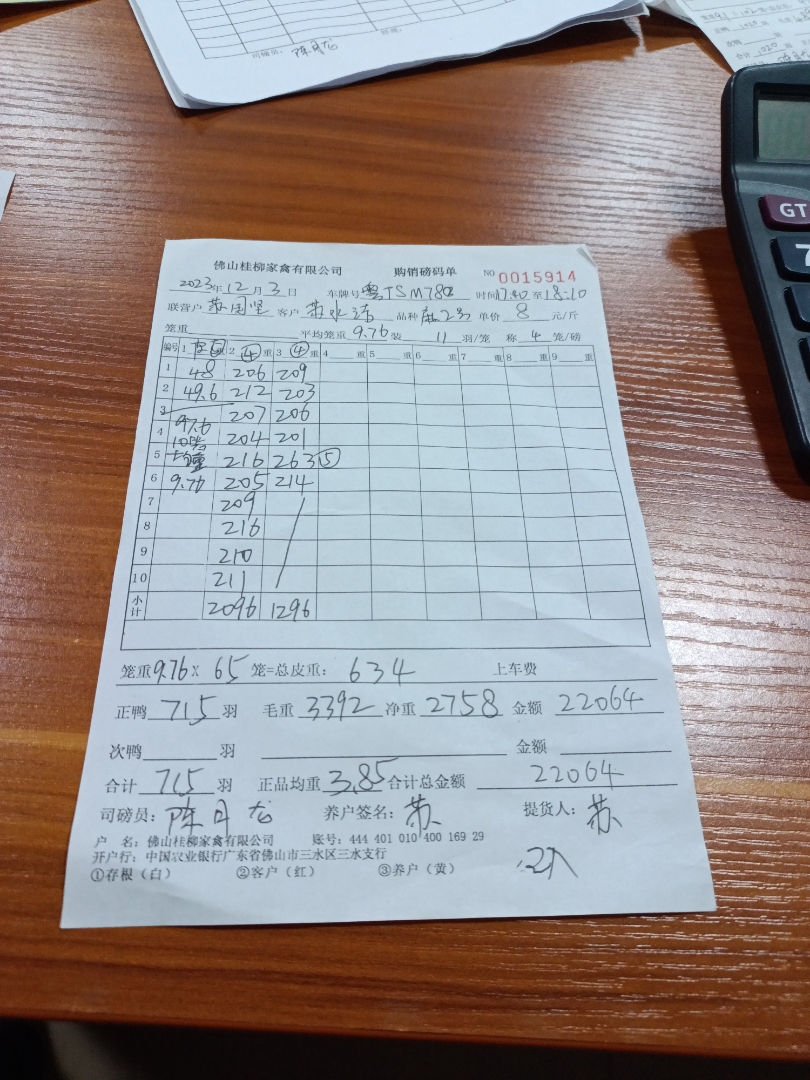 司磅员：陈月龙
佛山桂柳家禽有限公司 购销磅码单 NO 0015914
2023年12月3日 车牌号 粤TSM78 时间17:40至18:10
联营户 客户 苏 品种 麻2号 单价 8 元/斤
笼重 平均笼重 9.76 装 11 羽/笼 称 4 笼/磅
编号 1 重 2 ④ 重 3 ④ 重 4 重 5 重 6 重 7 重 8 重 9 重
1 48 206 209
2 49.6 212 203
3 207 206
4 97.6 204 201
5 216 263⑤
6 9.76 205 214
7 209
8 216
9 210
10 211
小计 2096 1296
笼重9.76X 65 笼=总皮重： 634 上车费
正鸭 715 羽 毛重 3392 净重 2758 金额 22064
次鸭 羽 金额
合计 715 羽 正品均重 3.85 合计总金额 22064
司磅员：陈月龙 养户签名：苏 提货人：苏
户 名：佛山桂柳家禽有限公司 账号：444 401 010 400 169 29
开户行：中国农业银行广东省佛山市三水区三水支行
①存根（白） ②客户（红） ③养户（黄）
GT
7